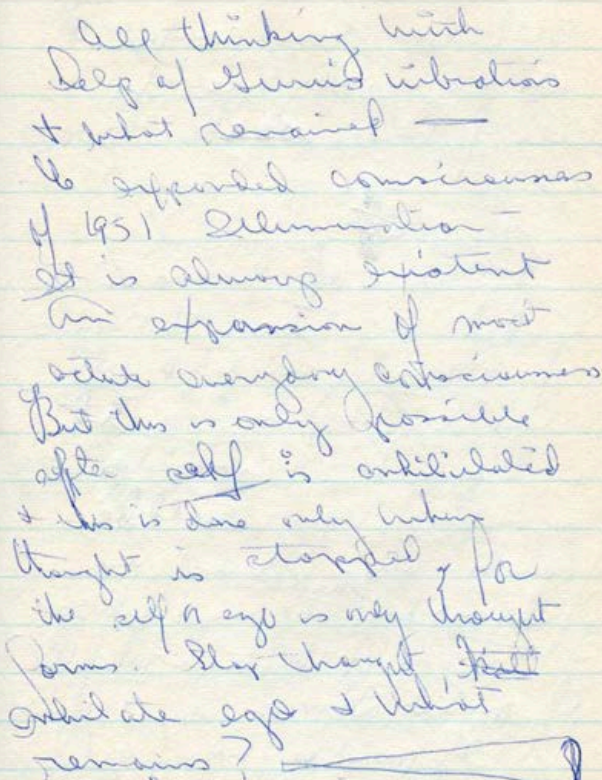 All thinking with
help of Guru's vibrations
& what remained —
the expanded consciousness
of 1951 Illumination —
It is always existent
An expansion of most
acute everyday consciousness
But this is only possible
after self is anhibulated
& this is done only when
thought is stopped, for
the self or ego is only thought
forms. Stop thought,
anhilate ego & what
remains?